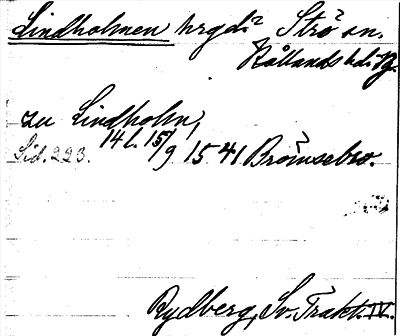 Lindholmen hrgd? Strö sn.
Kållands hd. Vg.
zu Lindholm,
Sid. 223. 14 l. 15/9 1541 Brömsebro.
Rydberg, Sv. Trakt. IV.